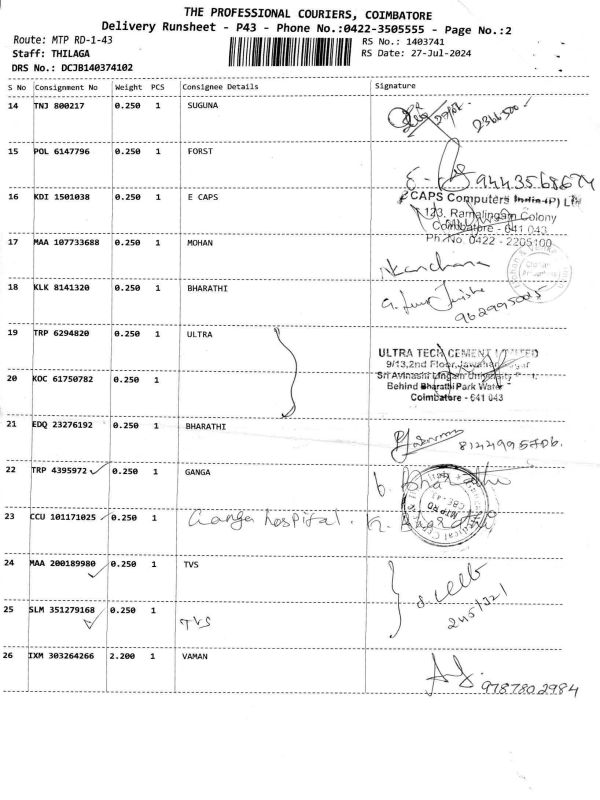 THE PROFESSIONAL COURIERS, COIMBATORE
Delivery Runsheet - P43 - Phone No.:0422-3505555 - Page No.:2
Route: MTP RD-1-43 RS No.: 1403741
Staff: THILAGA RS Date: 27-Jul-2024
DRS No.: DCJB140374102
S No Consignment No Weight PCS Consignee Details Signature
14 TNJ 800217 0.250 1 SUGUNA
15 POL 6147796 0.250 1 FORST
9443568674
16 KDI 1501038 0.250 1 E CAPS
CAPS Computers India (P) Ltd
123, Ramalingam Colony
Coimbatore - 641 043
Ph.No. 0422 - 2205100
17 MAA 107733688 0.250 1 MOHAN
18 KLK 8141320 0.250 1 BHARATHI
19 TRP 6294820 0.250 1 ULTRA
ULTRA TECH CEMENT LIMITED
9/13,2nd Floor,
Sri Avinashi Lingam University
Behind Bharathi Park Water
Coimbatore - 641 043
20 KOC 61750782 0.250 1
21 EDQ 23276192 0.250 1 BHARATHI
8144995706.
22 TRP 4395972 0.250 1 GANGA
MTP RD
23 CCU 101171025 0.250 1 Ganga hospital.
24 MAA 200189980 0.250 1 TVS
25 SLM 351279168 0.250 1 TVS
26 IXM 303264266 2.200 1 VAMAN
9787802984